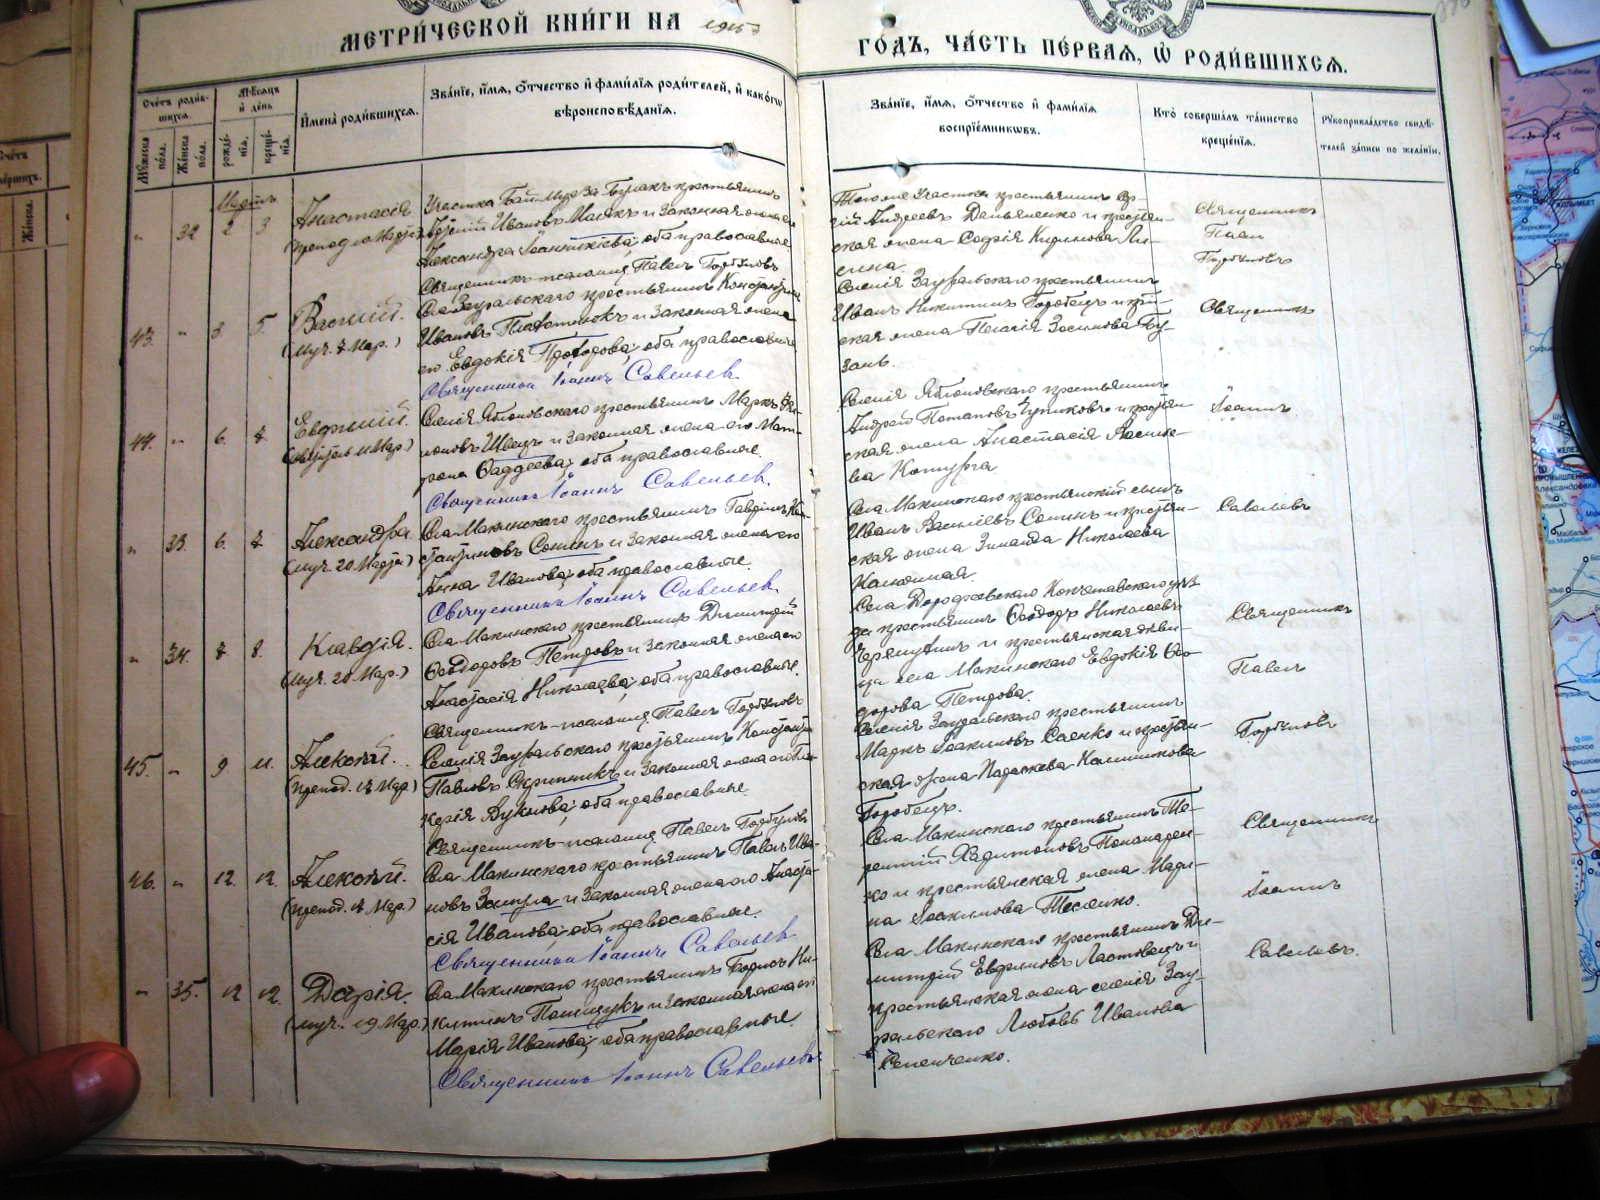 МЕТРИ́ЧЕСКОЙ КНИ́ГИ НА 1915
ГО́ДЪ, ЧА́СТЬ ПЕ́РВАЯ, Ѡ РОДИ́ВШИХСЯ.
Сче́тъ роди́в-
шихся.
Мѣ́сяцъ
и́ день
Му́жеска по́ла.
Же́нска по́ла.
рожде́-
нїя.
креще́-
нїя.
И́мена̀ роди́вшихся.
Зва́нїе, и́мя, о́тчество и́ фами́лїя роди́телей, и́ како́гѡ
вѣроисповѣ́данїя.
Зва́нїе, и́мя, о́тчество и́ фами́лїя
воспрїе́мникѡвъ.
Кто̀ соверша́лъ та́инство
креще́нїя.
Рꙋкоприкла́дство свидѣ́-
телей за́писи по жела́нїю.
Мартъ
" 32 2 3
Анастасія
Участка Бай-Мурза Буракъ крестьянинъ
Иванов и законная жена его
Александра оба православные
Священникъ-псаломщ. Павелъ Горбуновъ
Того же участка крестьянинъ
Андреевъ Демьяненко и крестьян-
ская жена Софія
Священникъ
Павел
Горбуновъ
43. " 3 5.
Василій.
(Муч. 7 Мар.)
Села Зауральскаго крестьянинъ Константинъ
Ивановъ и законная жена
его Евдокія Прохорова; оба православные
Священникъ Іоаннъ Савельевъ
Селенія Зауральскаго крестьянинъ
Иванъ Никитинъ Горобецъ и крестьян-
ская жена Пелагія Зосимова Бу-
зань.
Священникъ
44. " 6. 7.
Евфимій.
Селенія Яблоновскаго крестьянинъ Маркъ
Швецъ и законная жена его Мат-
рона Фаддеева; оба православные.
Священникъ Іоаннъ Савельевъ.
Селенія Яблоновскаго крестьянинъ
Андрей Потаповъ и крестьян-
ская жена Анастасія Василье-
ва
Іоаннъ
" 33. 6. 7.
Александра
(муч. 20 Марта)
Села Макинскаго крестьянинъ Гавріилъ Кон-
стантиновъ Сонинъ и законная жена его
Анна Иванова; оба православные.
Священникъ Іоаннъ Савельевъ
Села Макинскаго крестьянскій сынъ
Иванъ Василіевъ Сонинъ и крестьян-
ская жена Зинаида Николаева
Савельевъ
" 34. 7 8.
Клавдія.
(Муч. 20 Мар.)
Села Макинскаго крестьянинъ Димитрій
Ѳеодоровъ Петровъ и законная жена его
Анастасія Николаева; оба православные.
Священникъ-псаломщ. Павелъ Горбуновъ
Села Дорофѣевскаго Кокчетавскаго уѣз-
да крестьянинъ Ѳеодоръ Николаевъ
и крестьянская дѣви-
ца села Макинскаго Евдокія Ѳео-
дорова Петрова.
Священникъ
Павелъ
45. " 9. 11.
Алексѣй.
(Препод. 17 Мар.)
Селенія Зауральскаго крестьянинъ Константинъ
Павловъ Скрипникъ и законная жена его Гли-
керія Вукулова; оба православные.
Священникъ-псаломщ. Павелъ Горбуновъ
Селенія Зауральскаго крестьянинъ
Маркъ Іоакимовъ Саенко и крестьян-
ская жена Параскева Калинникова
Горобецъ.
Горбуновъ
46. " 12. 12.
Алексѣй.
(Препод. 17 Мар.)
Села Макинскаго крестьянинъ Павелъ Ива-
новъ и законная жена его Анаста-
сія Иванова; оба православные.
Священникъ Іоаннъ Савельевъ
Села Макинскаго крестьянинъ Те-
рентій Харитоновъ Пономарен-
ко и крестьянская жена Мари-
на Іоакимова Тесленко.
Священникъ
Іоаннъ
" 35. 12 12.
Дарія.
(муч. 19 Мар.)
Села Макинскаго крестьянинъ Борисъ Ни-
китинъ Полищукъ и законная жена его
Марія Иванова; оба православные.
Священникъ Іоаннъ Савельевъ
Села Макинскаго крестьянинъ Ди-
митрій Евфимовъ Ластовецъ и
крестьянская жена селенія Зау-
ральскаго Любовь Иванова
Семенченко.
Савельевъ.